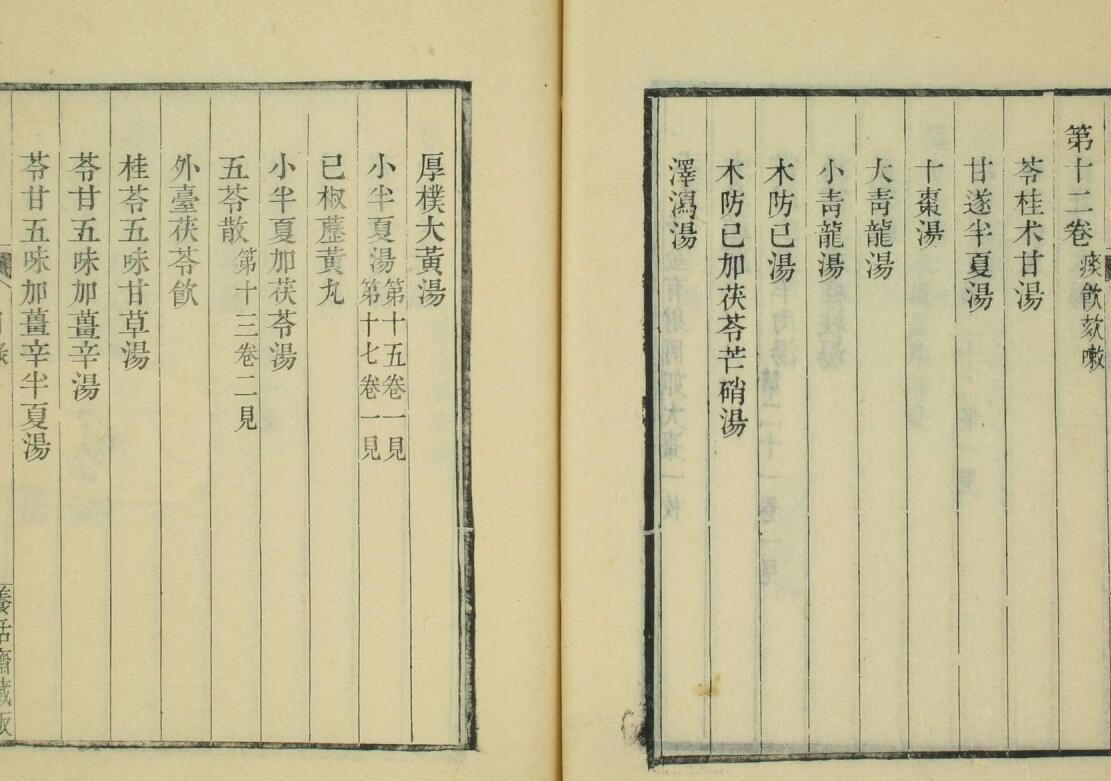 第十二卷 痰飮欬嗽
苓桂术甘湯
甘遂半夏湯
十棗湯
大靑龍湯
小靑龍湯
木防已湯
木防已加茯苓芒硝湯
澤瀉湯
厚樸大黃湯
小半夏湯 第十五卷一見
第十七卷一見
已椒藶黃丸
小半夏加茯苓湯
五苓散 第十三卷二見
外臺茯苓飮
桂苓五味甘草湯
苓甘五味加薑辛湯
苓甘五味加薑辛半夏湯